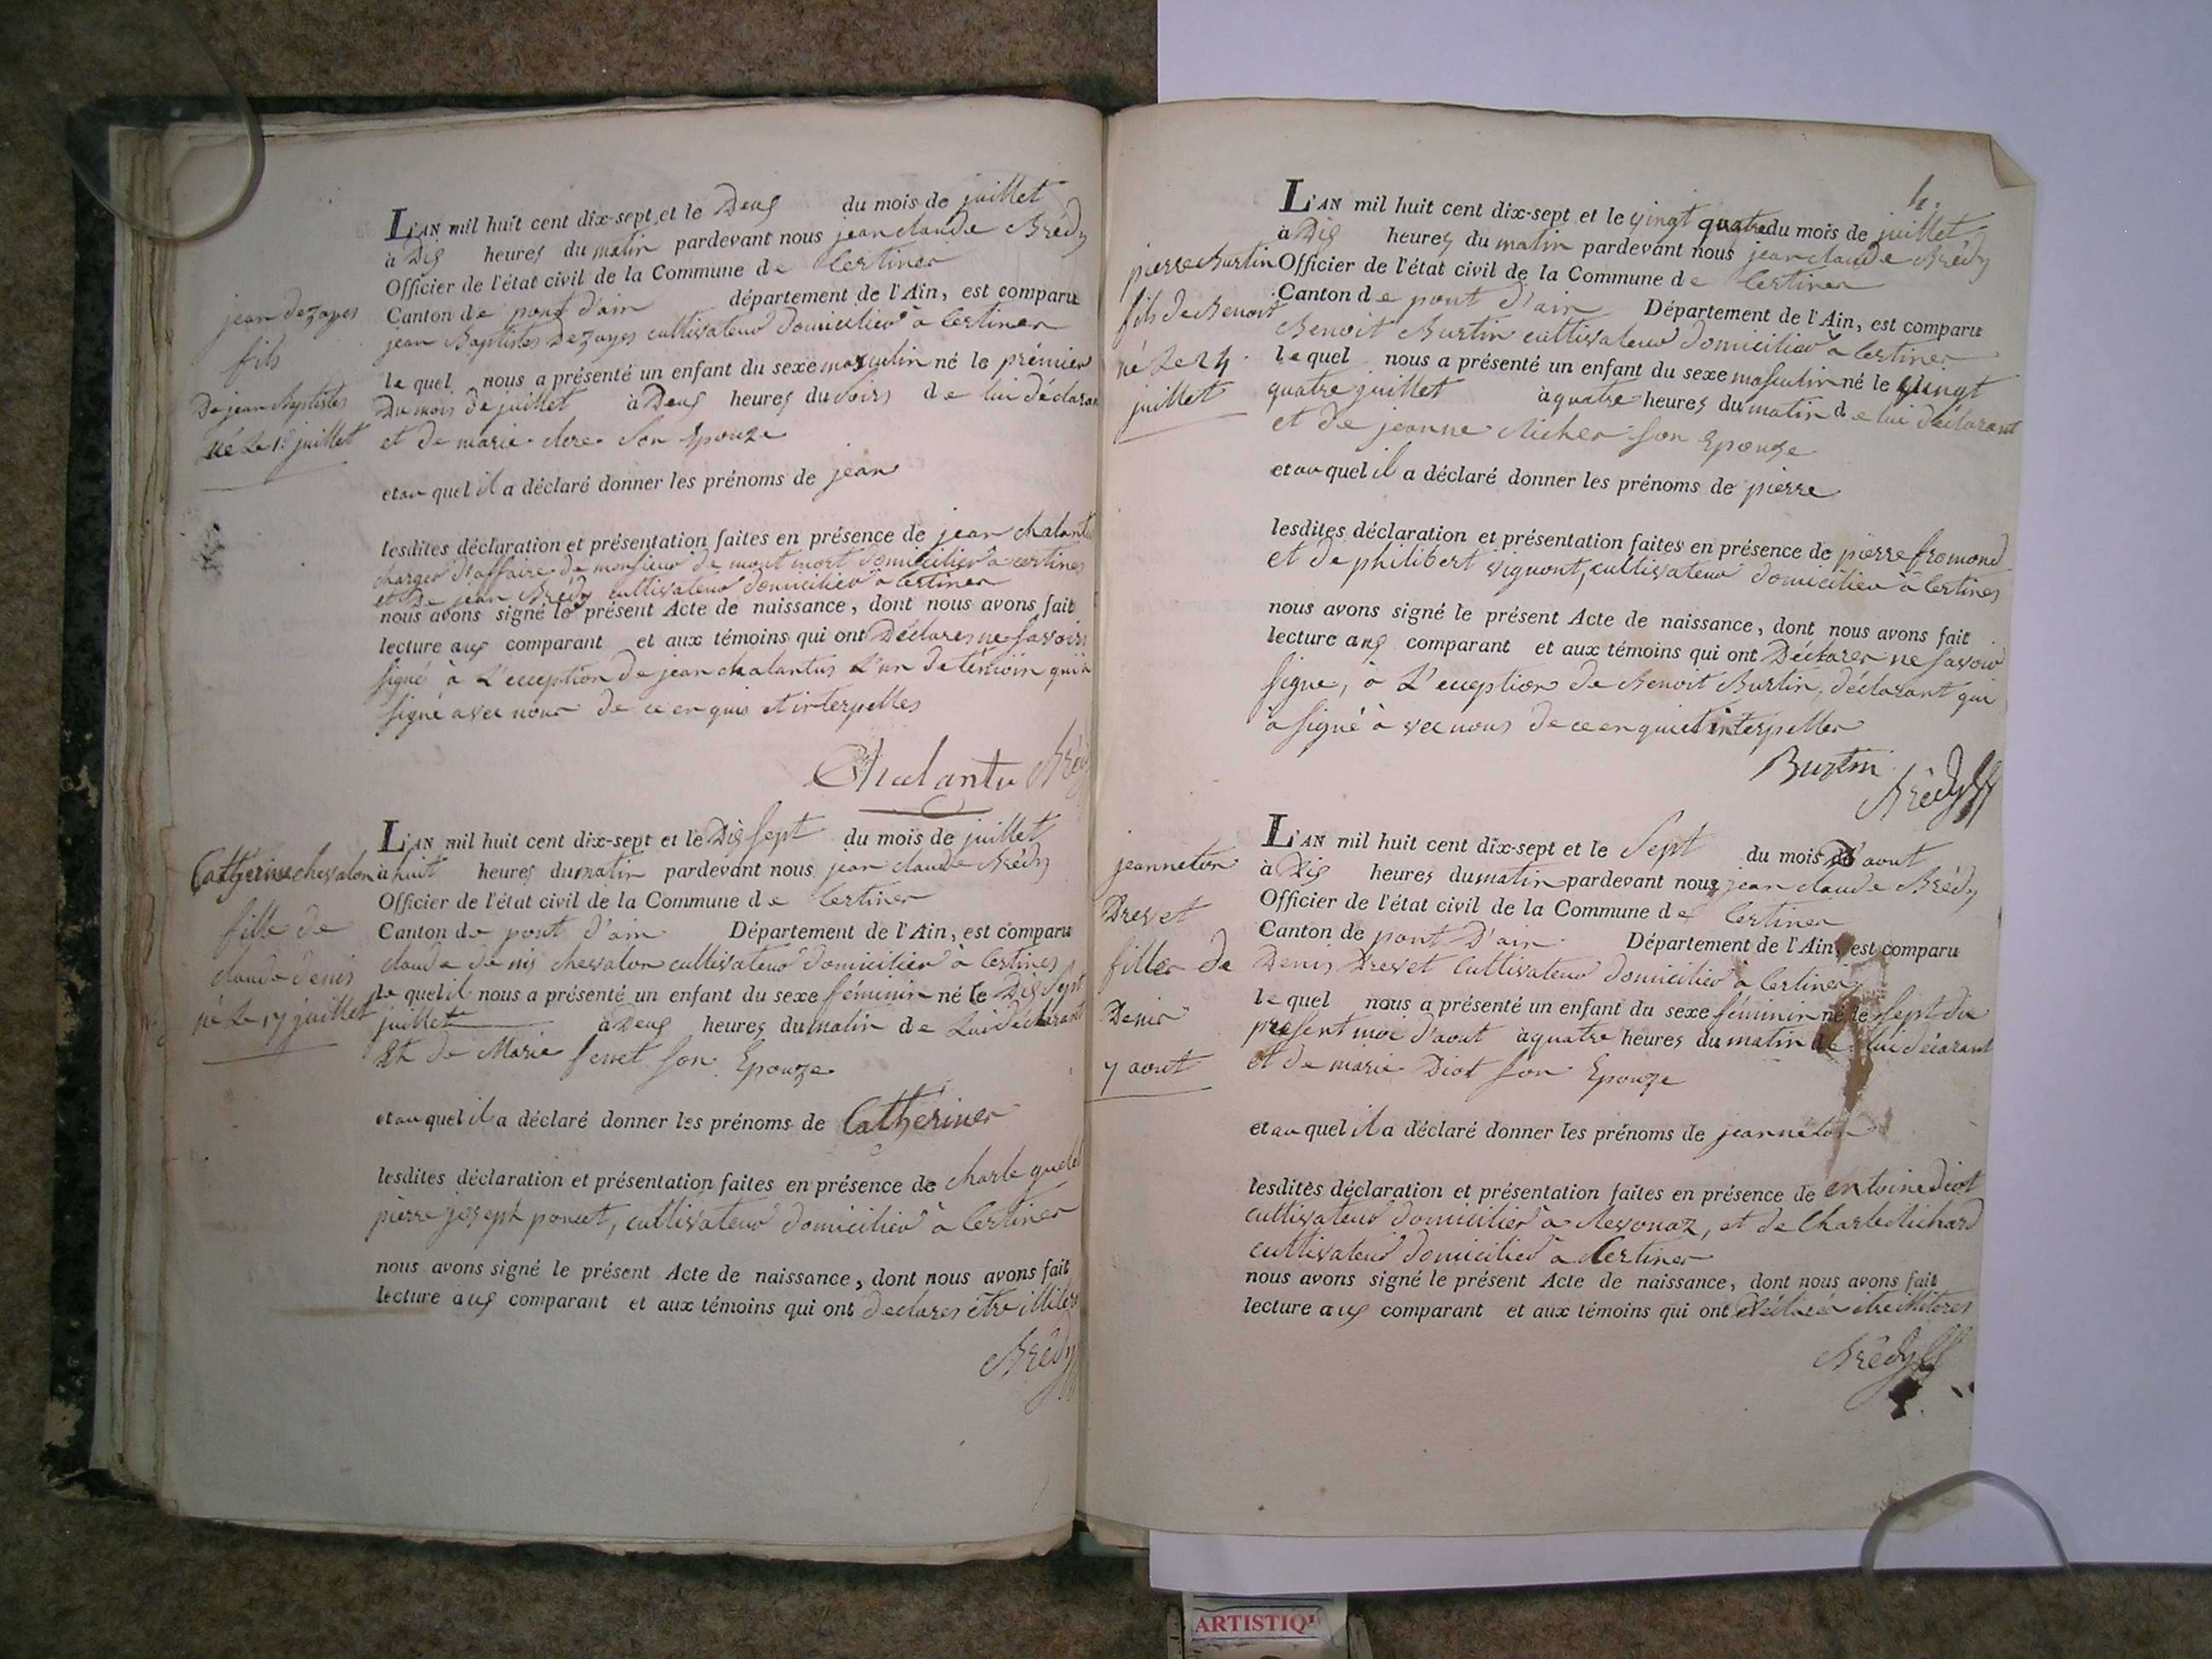 L'AN mil huit cent dix-sept et le Deux du mois de juillet
à Dix heures du matin pardevant nous jean claude Brédy
Officier de l'état civil de la Commune de Certines
Canton de pont d'ain département de l'Ain, est comparu
jean Baptistes Dezayes cultivateur domicilier à Certines
le quel nous a présenté un enfant du sexe masculin né le prémier
Du mois de juillet à Deux heures du soirs de lui déclarant
et de marie clere son Epouze
et au quel il a déclaré donner les prénoms de jean
lesdites déclaration et présentation faites en présence de jean chalantu
charger d'affaire de monsieur de mont mort domicilier à certines
et de jean Brédy cultivateur domicilier à Certines
nous avons signé le présent Acte de naissance, dont nous avons fait
lecture aux comparant et aux témoins qui ont Déclarer ne savoirs
signé à L'exception de jean chalantus L'un de témoin qui a
signé avec nous de ce enquis et interpelles
Chalantu Brédy
jean dezayes
fils
De jean Baptistes
Né Le 1er juillet
L'AN mil huit cent dix-sept et le Dix sept du mois de juillet
à huit heures du matin pardevant nous jean claude Brédy
Officier de l'état civil de la Commune de Certines
Canton de pont d'ain Département de l'Ain, est comparu
claude denis chevalon cultivateur domicilier à Certines
le quel il nous a présenté un enfant du sexe féminin né le Dix sept
juillet à Deux heures du matin de Lui déclarant
Et de Marie ferret son Epouze
et au quel il a déclaré donner les prénoms de Catherines
lesdites déclaration et présentation faites en présence de charle
pierre joseph poncet, cultivateur domicilier à Certines
nous avons signé le présent Acte de naissance, dont nous avons fait
lecture aux comparant et aux témoins qui ont declarer être illiters
Brédy
Catherine chevalon
fille de
claude denis
né Le 17 juillet
4.
L'AN mil huit cent dix-sept et le vingt quatre du mois de juillet
à Dix heures du matin pardevant nous jean claude Brédy
Officier de l'état civil de la Commune de Certines
Canton de pont d'ain Département de l'Ain, est comparu
Benoit Burtin cultivateur domicilier à Certines
le quel nous a présenté un enfant du sexe masculin né le vingt
quatre juillet à quatre heures du matin de lui déclarant
et de jeanne Nicher son Epouze
et au quel il a déclaré donner les prénoms de pierre
lesdites déclaration et présentation faites en présence de pierre fromond
et de philibert vignont, cultivateur domicilier à Certines
nous avons signé le présent Acte de naissance, dont nous avons fait
lecture aux comparant et aux témoins qui ont Déclarer ne savoir
signe, à L'exception de Benoit Burtin, déclarant qui
à signé à vec nous de ce enquis et interpeller
Burtin
Brédy
pierre Burtin
fils de Benoit
né Le 24
juillet
L'AN mil huit cent dix-sept et le Sept du mois D'aout
à Dix heures du matin pardevant nous jean claude Brédy
Officier de l'état civil de la Commune de Certines
Canton de pont D'ain Département de l'Ain, est comparu
Denis Drevet cultivateur domicilier à Certines
le quel nous a présenté un enfant du sexe féminin né le Sept du
présent moi d'aout à quatre heures du matin de lui déclarant
et de marie Diot son Epouze
et au quel il a déclaré donner les prénoms de jeanneton
lesdites déclaration et présentation faites en présence de antoine diot
cultivateur domicilier à Revonaz, et de Charle Michard
cultivateur domicilier à Certines
nous avons signé le présent Acte de naissance, dont nous avons fait
lecture aux comparant et aux témoins qui ont Déclarer être illiteres
Brédy
jeanneton
Drevet
filles de
Denis
7 aout
ARTISTIQ